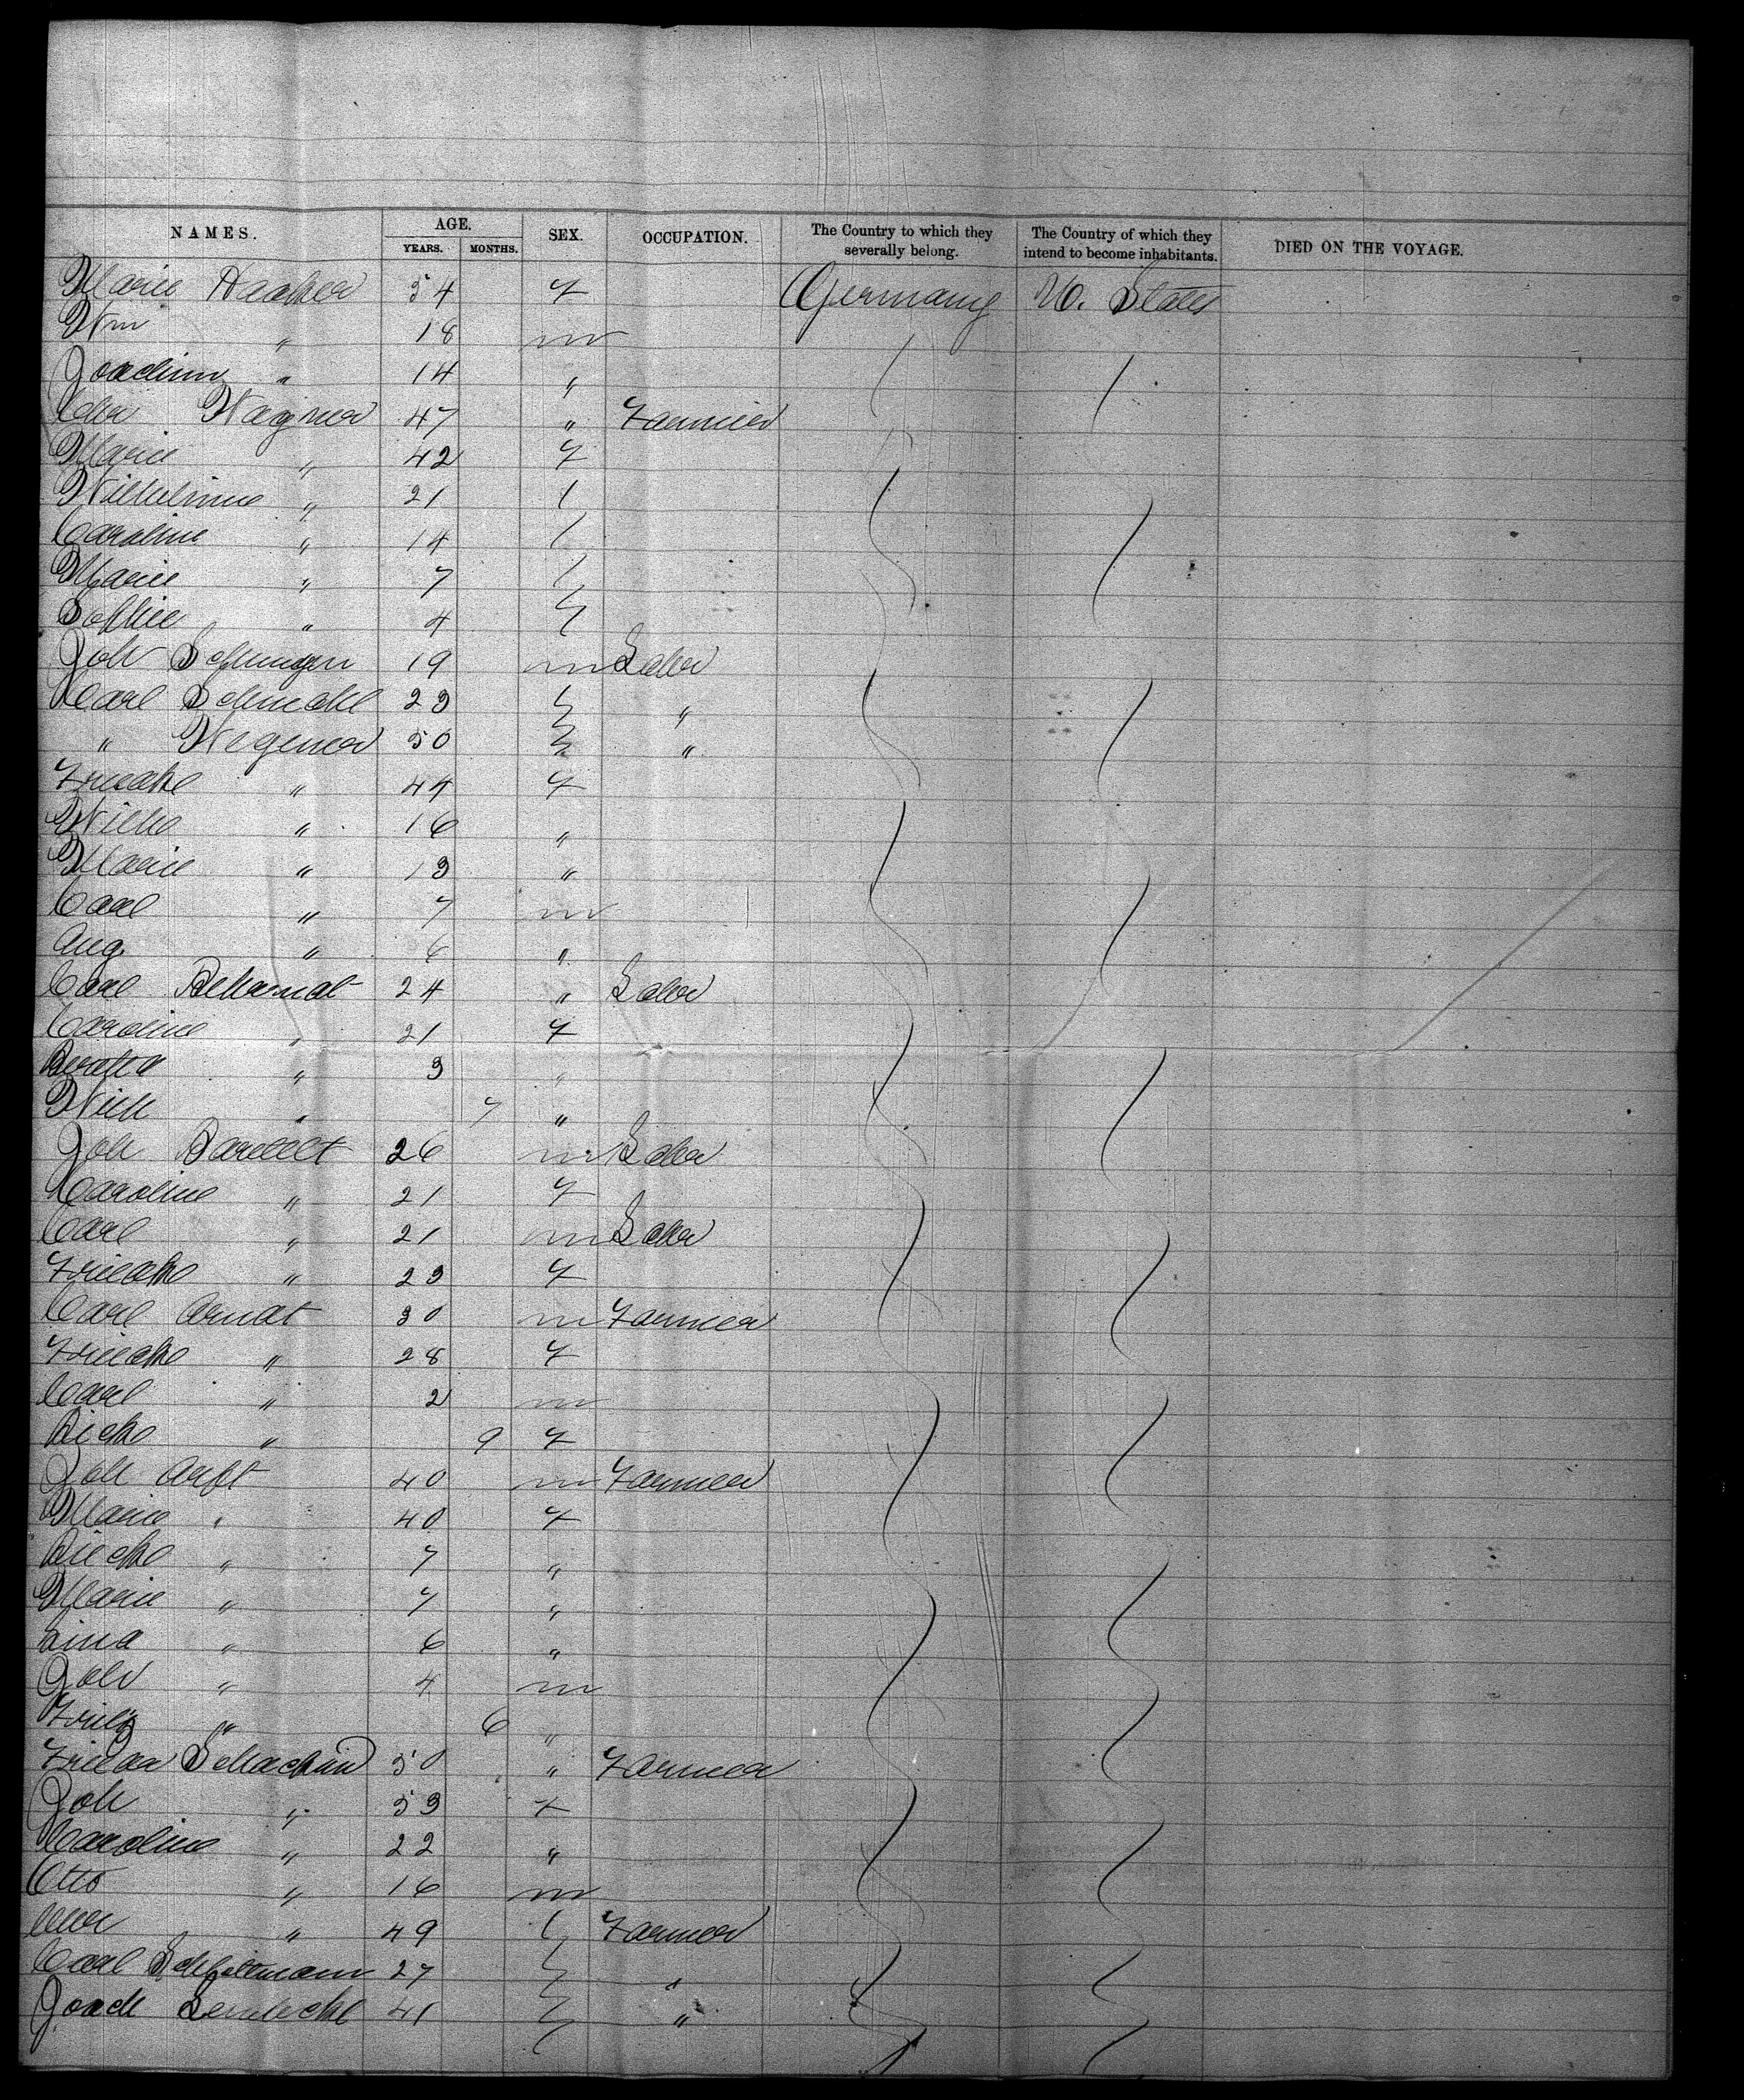 NAMES. AGE. YEARS. MONTHS. SEX. OCCUPATION. The Country to which they severally belong. The Country of which they intend to become inhabitants. DIED ON THE VOYAGE.
Marie Haaker 54 f Germany U. States
Wm " 18 m
Joachim " 14 "
Wagner 47 " Farmer
Marie " 42 f
Wilhelmine " 21
Caroline " 14
Marie " 7
Sophie " 4
Joh 19 m Labor
Carl Schmakl 23 "
" Wegener 50 "
Friecke " 44 f
Wilh " 16 "
Marie " 13 "
Carl " 7 m
Aug. " 6 "
Carl 24 " Labor
Caroline " 21 f
Bertha " 3 "
Wilh " 7 "
Joh Bartelt 26 m Labor
Caroline " 21 f
Carl " 21 m Labor
Friecke " 23 f
Carl Arndt 30 m Farmer
Friecke " 28 f
Carl " 2 m
Rieke " 9 f
Joh Arft 40 m Farmer
Marie " 40 f
Riecke " 7 "
Marie " 7 "
Lina " 6 "
Joh " 4 m
Fritz " 6 "
50 " Farmer
Joh " 53 f
Caroline " 22 "
Otto " 16 m
" 49 Farmer
Carl 27 "
Joach 41 "